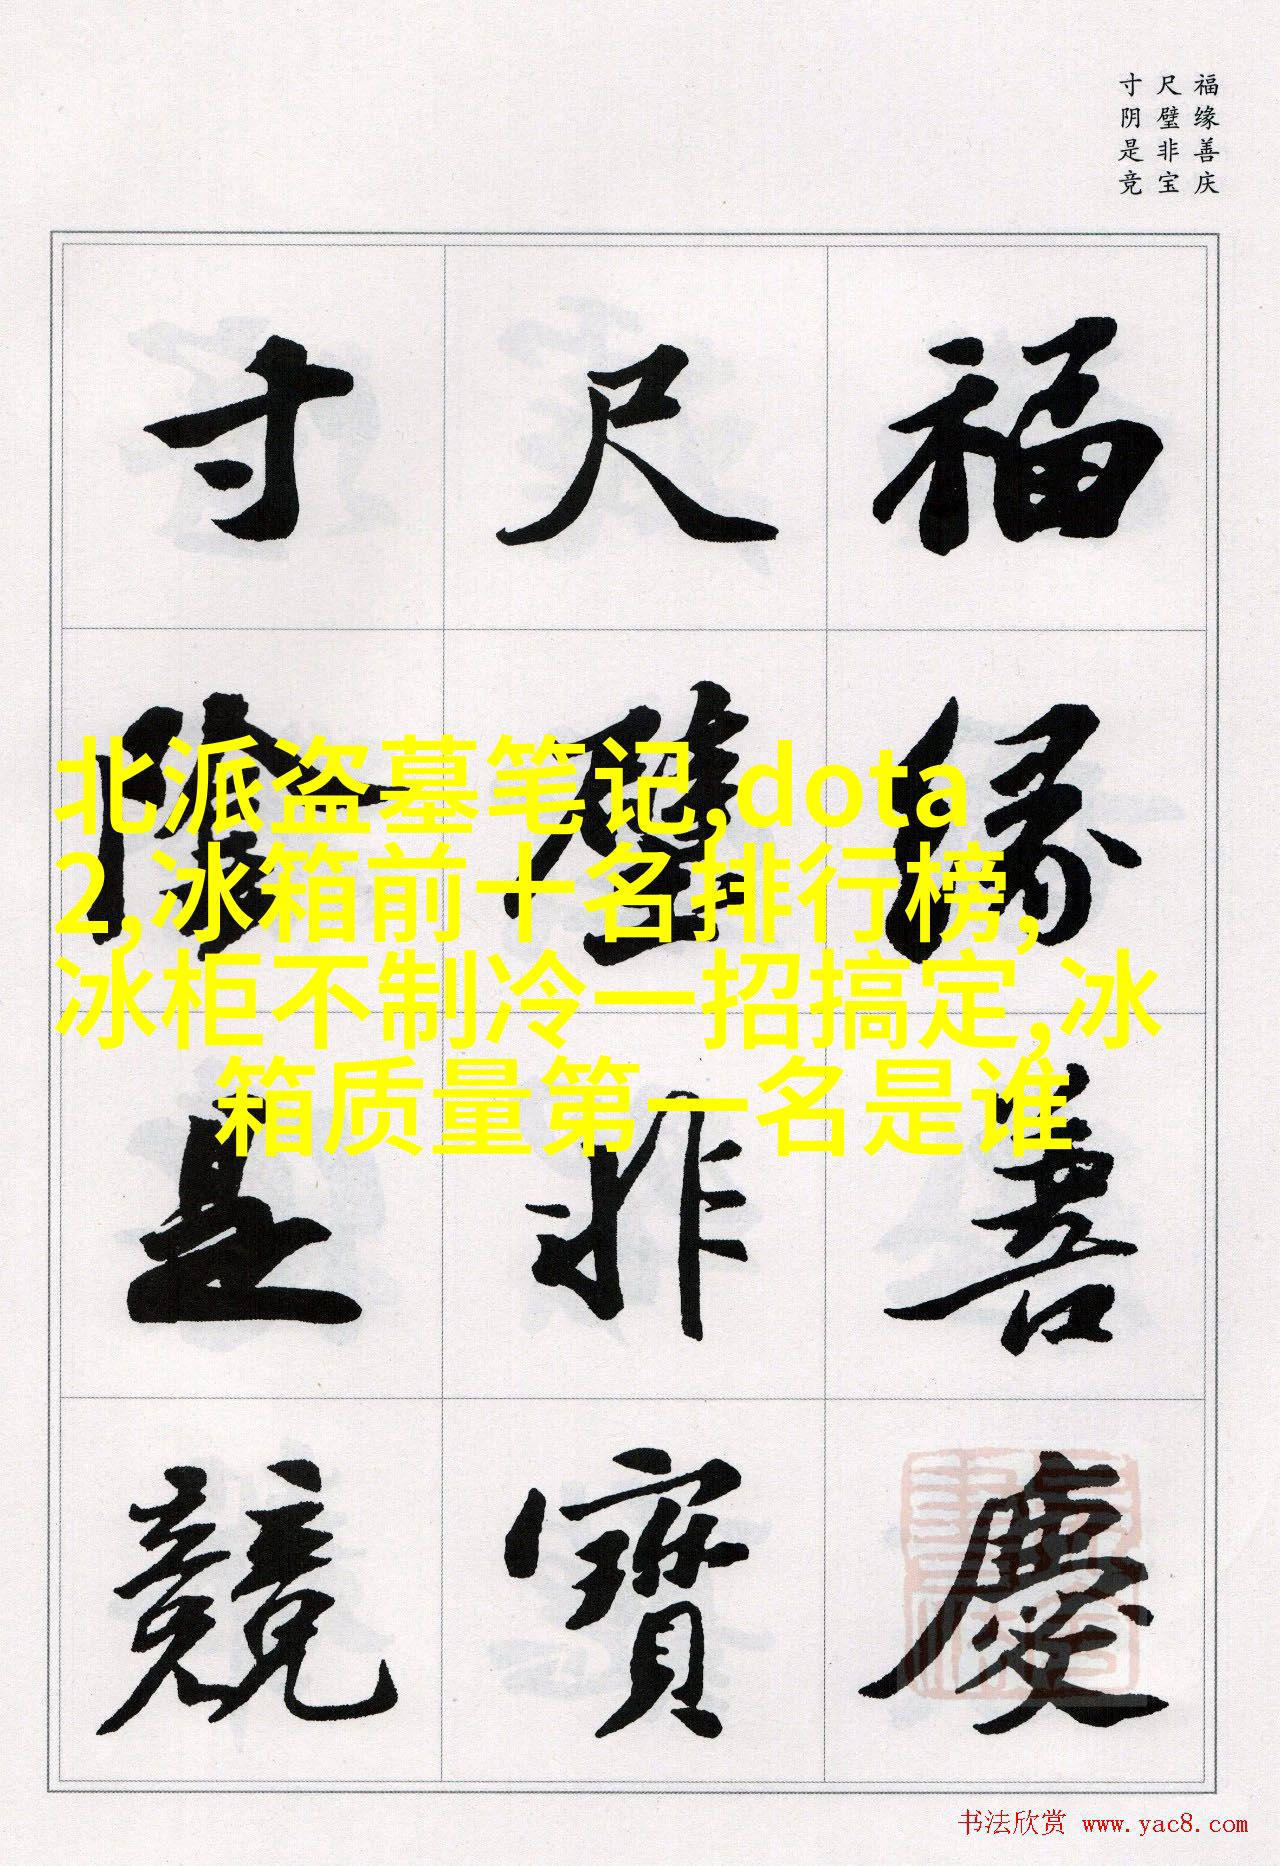 福缘善庆
尺璧非宝
寸阴是竞
福緣善慶
尺璧非寶
寸陰是競
北派盗墓笔记,dota
2,冰箱前十名排行榜,
冰柜不制冷一招搞定,冰
箱质量第一名是谁
书法欣赏 www.yac8.com